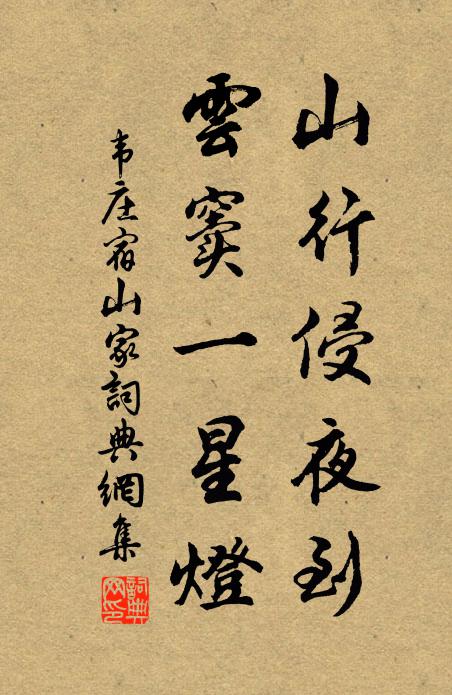 山行侵夜到
雲竇一星燈
韦庄宿山家詞典網集
詞典網印